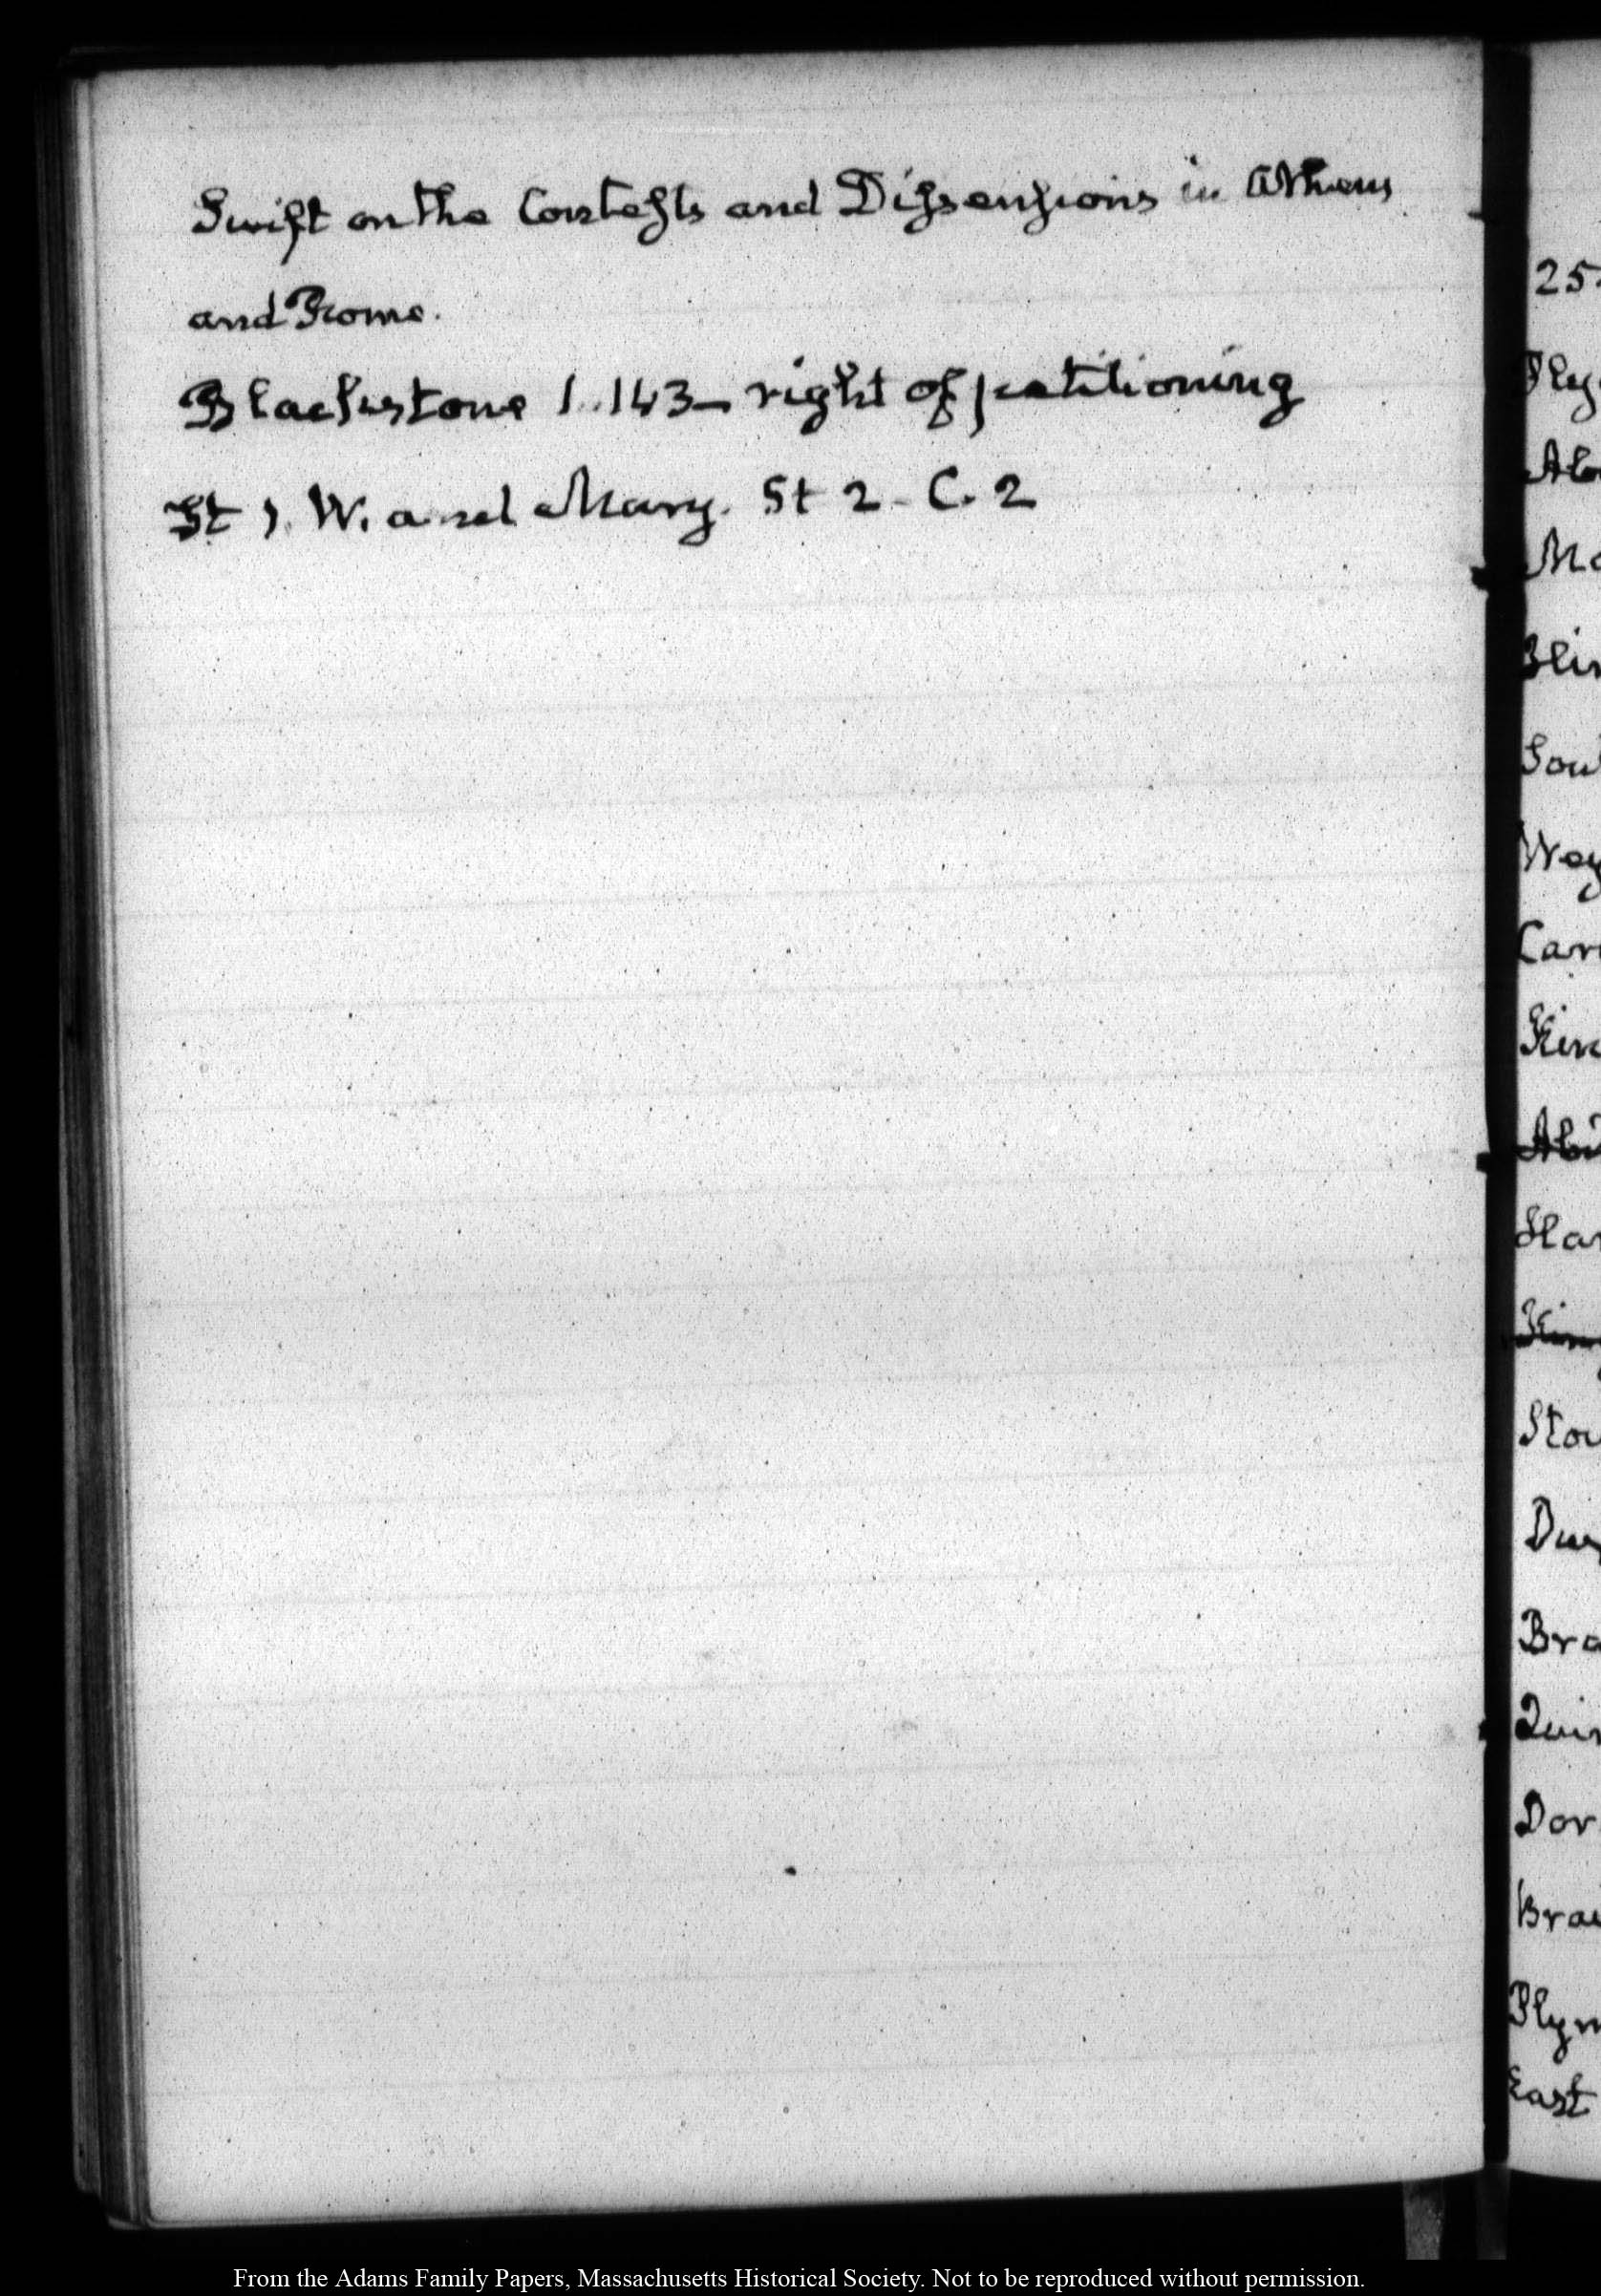 Swift on the Contests and Dissensions in Athens
and Rome.
Blackstone 1. 143 — right of petitioning
St 1. W. and Mary. St 2 - C. 2
25
Ply
Ab
Ma
Blin
Sou
Wey
Car
Kin
Abi
Han
Kin
Stou
Dux
Bra
Quin
Dor
Brai
Plym
East
From the Adams Family Papers, Massachusetts Historical Society. Not to be reproduced without permission.